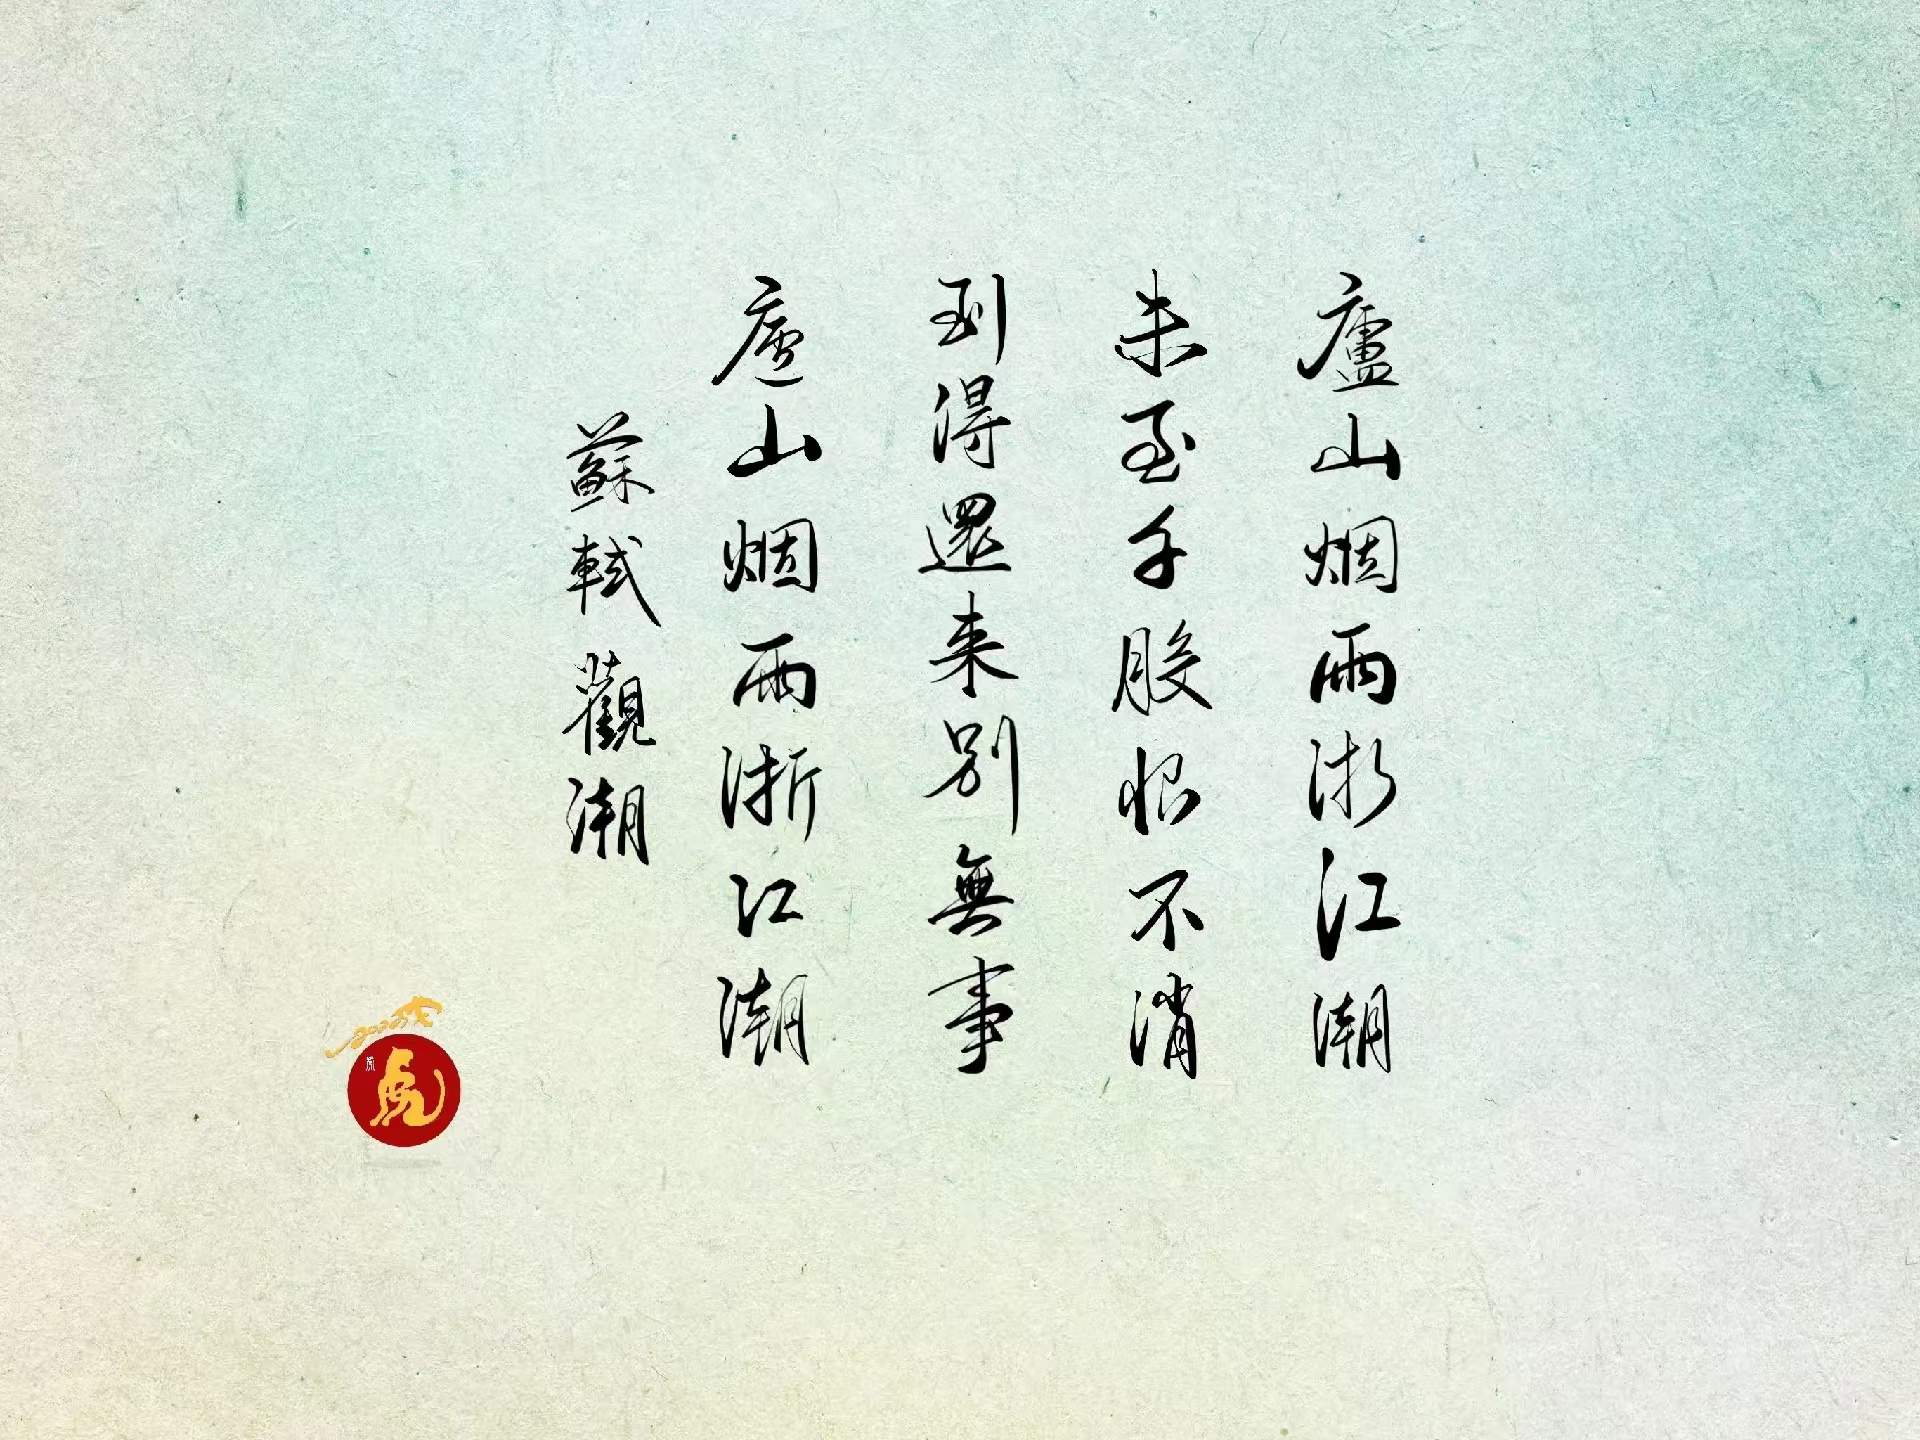 廬山烟雨浙江潮
未至千般恨不消
到得還来别無事
廬山烟雨浙江潮
蘇軾觀潮
虎